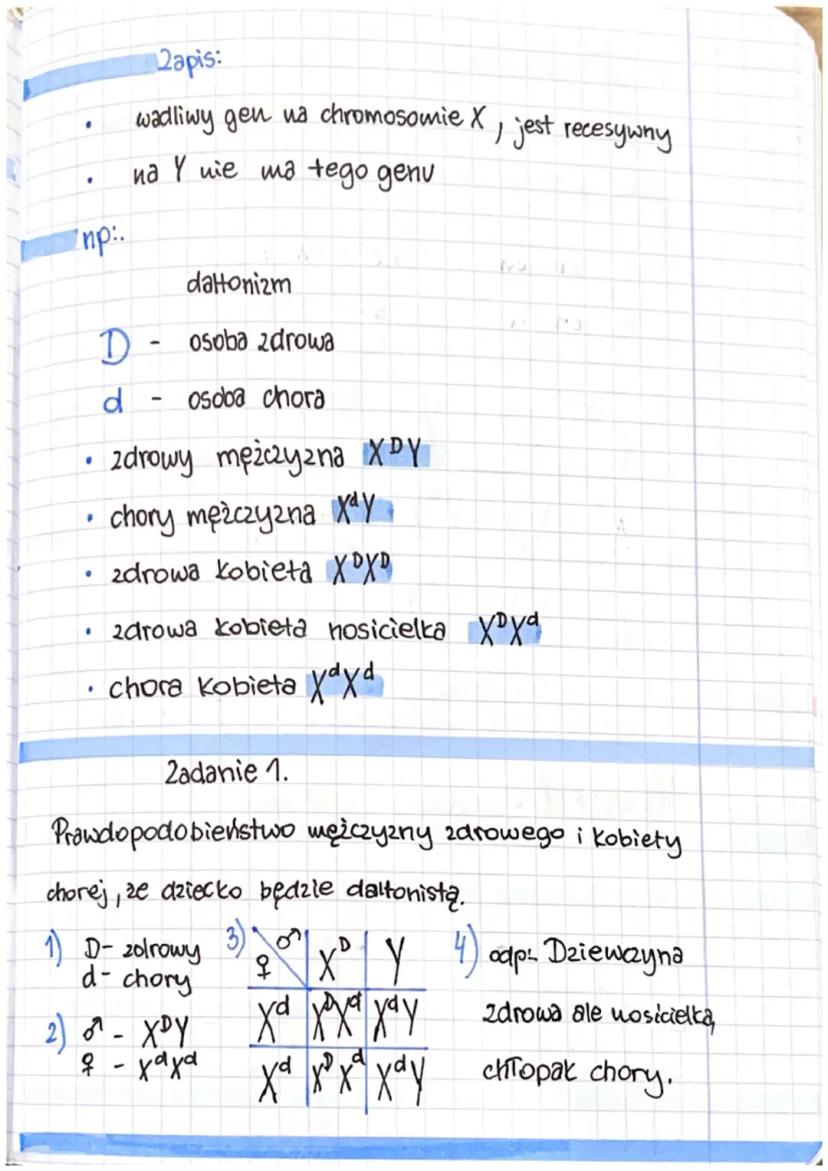 Zapis:
• wadliwy gen na chromosomie X, jest recesywny
• na Y nie ma tego genu
np:.
daltonizm
D - osoba zdrowa
d - osoba chora
• zdrowy mężczyzna XᴰY
• chory mężczyzna XᵈY
• zdrowa kobieta XᴰXᴰ
• zdrowa kobieta nosicielka XᴰXᵈ
• chora kobieta XᵈXᵈ
Zadanie 1.
Prawdopodobieństwo mężczyzny zdrowego i kobiety
chorej, że dziecko będzie daltonistą.
1) D- zdrowy
d- chory
2) ♂ - XᴰY
♀ - XᵈXᵈ
3) ♀ ♂ Xᴰ Y
Xᵈ XᴰXᵈ XᵈY
Xᵈ XᴰXᵈ XᵈY
4) odp: Dziewczyna
zdrowa ale nosicielką,
chłopak chory.